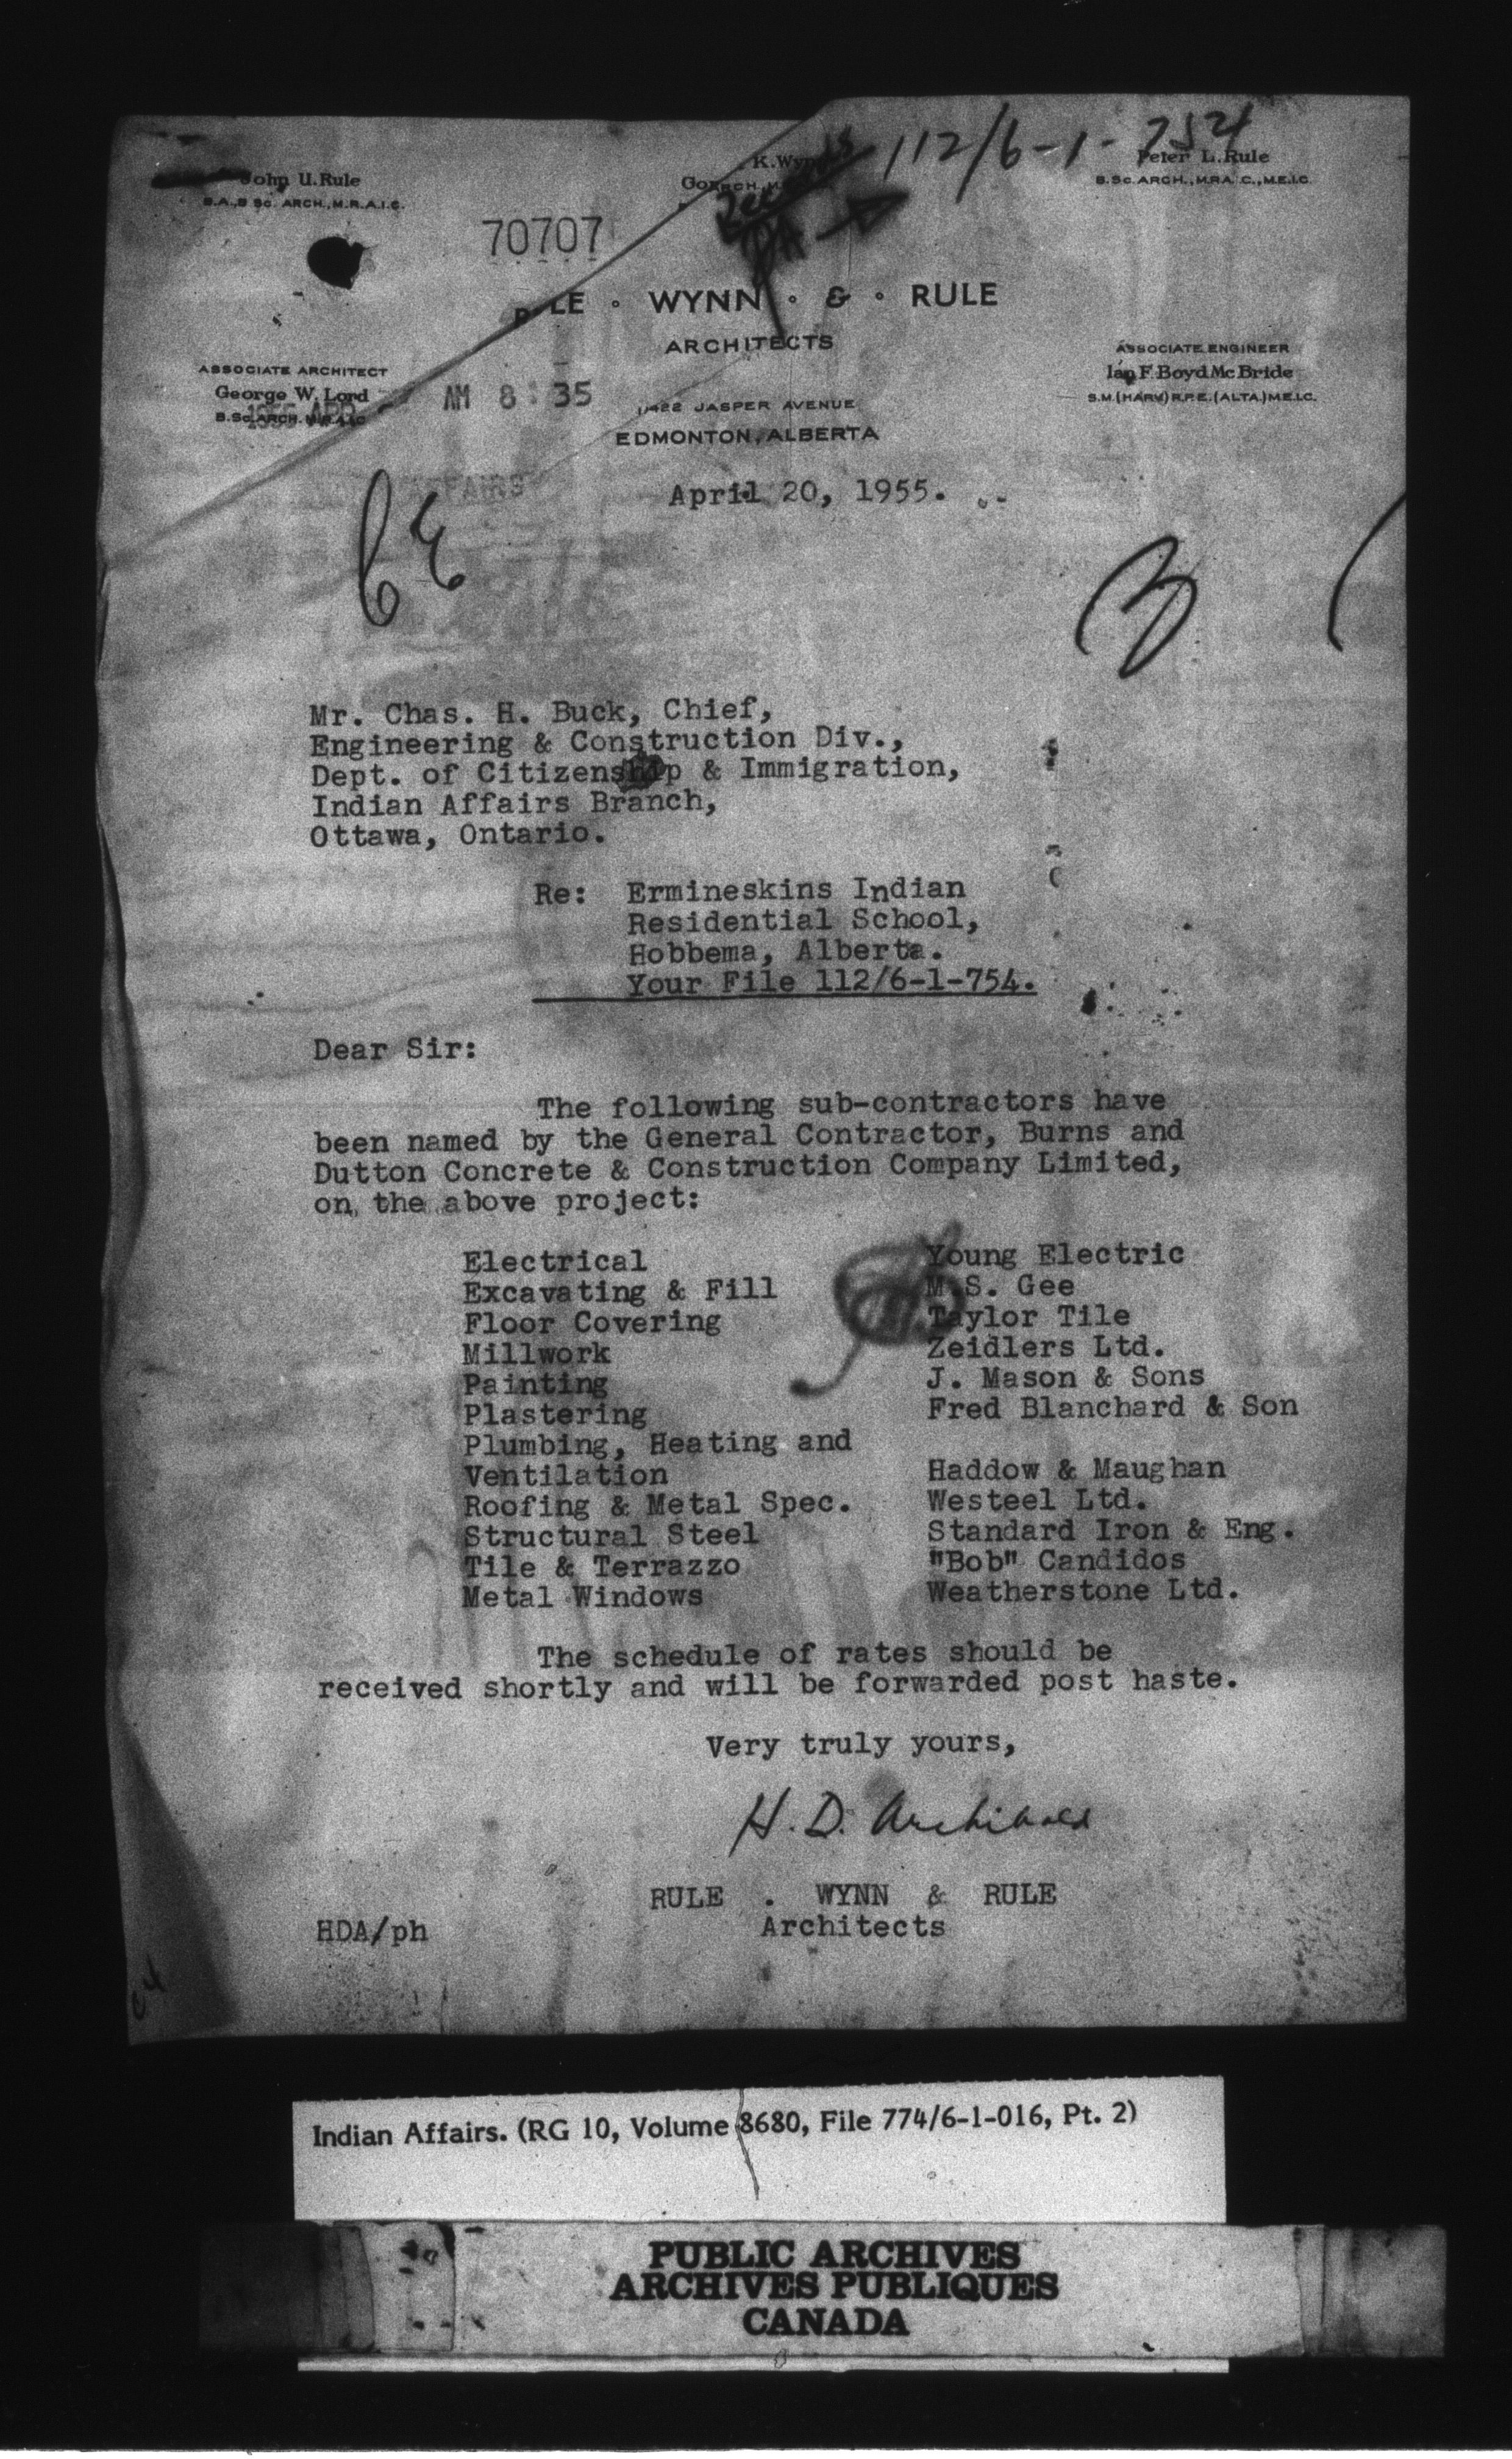 112/6-1-754
John U. Rule
B.A., B Sc. ARCH., M.R.A.I.C.
K. Wynn
Peter L. Rule
B.Sc. ARCH., M.R.A.I.C., M.E.I.C.
70707
LE • WYNN • & • RULE
ARCHITECTS
ASSOCIATE ARCHITECT
George W. Lord
B.Sc. ARCH. M.R.A.I.C.
1955 APR
AM 8:35
ASSOCIATE ENGINEER
Ian F. Boyd McBride
S.M. (HARV) R.P.E. (ALTA.) M.E.I.C.
11422 JASPER AVENUE
EDMONTON, ALBERTA
April 20, 1955.
Mr. Chas. H. Buck, Chief,
Engineering & Construction Div.,
Dept. of Citizenship & Immigration,
Indian Affairs Branch,
Ottawa, Ontario.
Re: Ermineskins Indian
Residential School,
Hobbema, Alberta.
Your File 112/6-1-754.
Dear Sir:
The following sub-contractors have
been named by the General Contractor, Burns and
Dutton Concrete & Construction Company Limited,
on the above project:
Electrical Young Electric
Excavating & Fill M.S. Gee
Floor Covering Taylor Tile
Millwork Zeidlers Ltd.
Painting J. Mason & Sons
Plastering Fred Blanchard & Son
Plumbing, Heating and
Ventilation Haddow & Maughan
Roofing & Metal Spec. Westeel Ltd.
Structural Steel Standard Iron & Eng.
Tile & Terrazzo "Bob" Candidos
Metal Windows Weatherstone Ltd.
The schedule of rates should be
received shortly and will be forwarded post haste.
Very truly yours,
H. D. Archibald
RULE . WYNN & RULE
Architects
HDA/ph
Indian Affairs. (RG 10, Volume 8680, File 774/6-1-016, Pt. 2)
PUBLIC ARCHIVES
ARCHIVES PUBLIQUES
CANADA